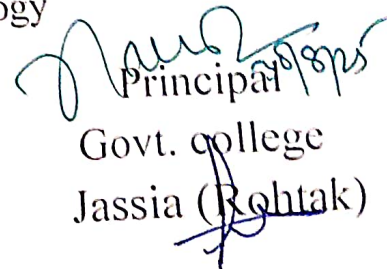 ogy
Principal
Govt. college
Jassia (Rohtak)